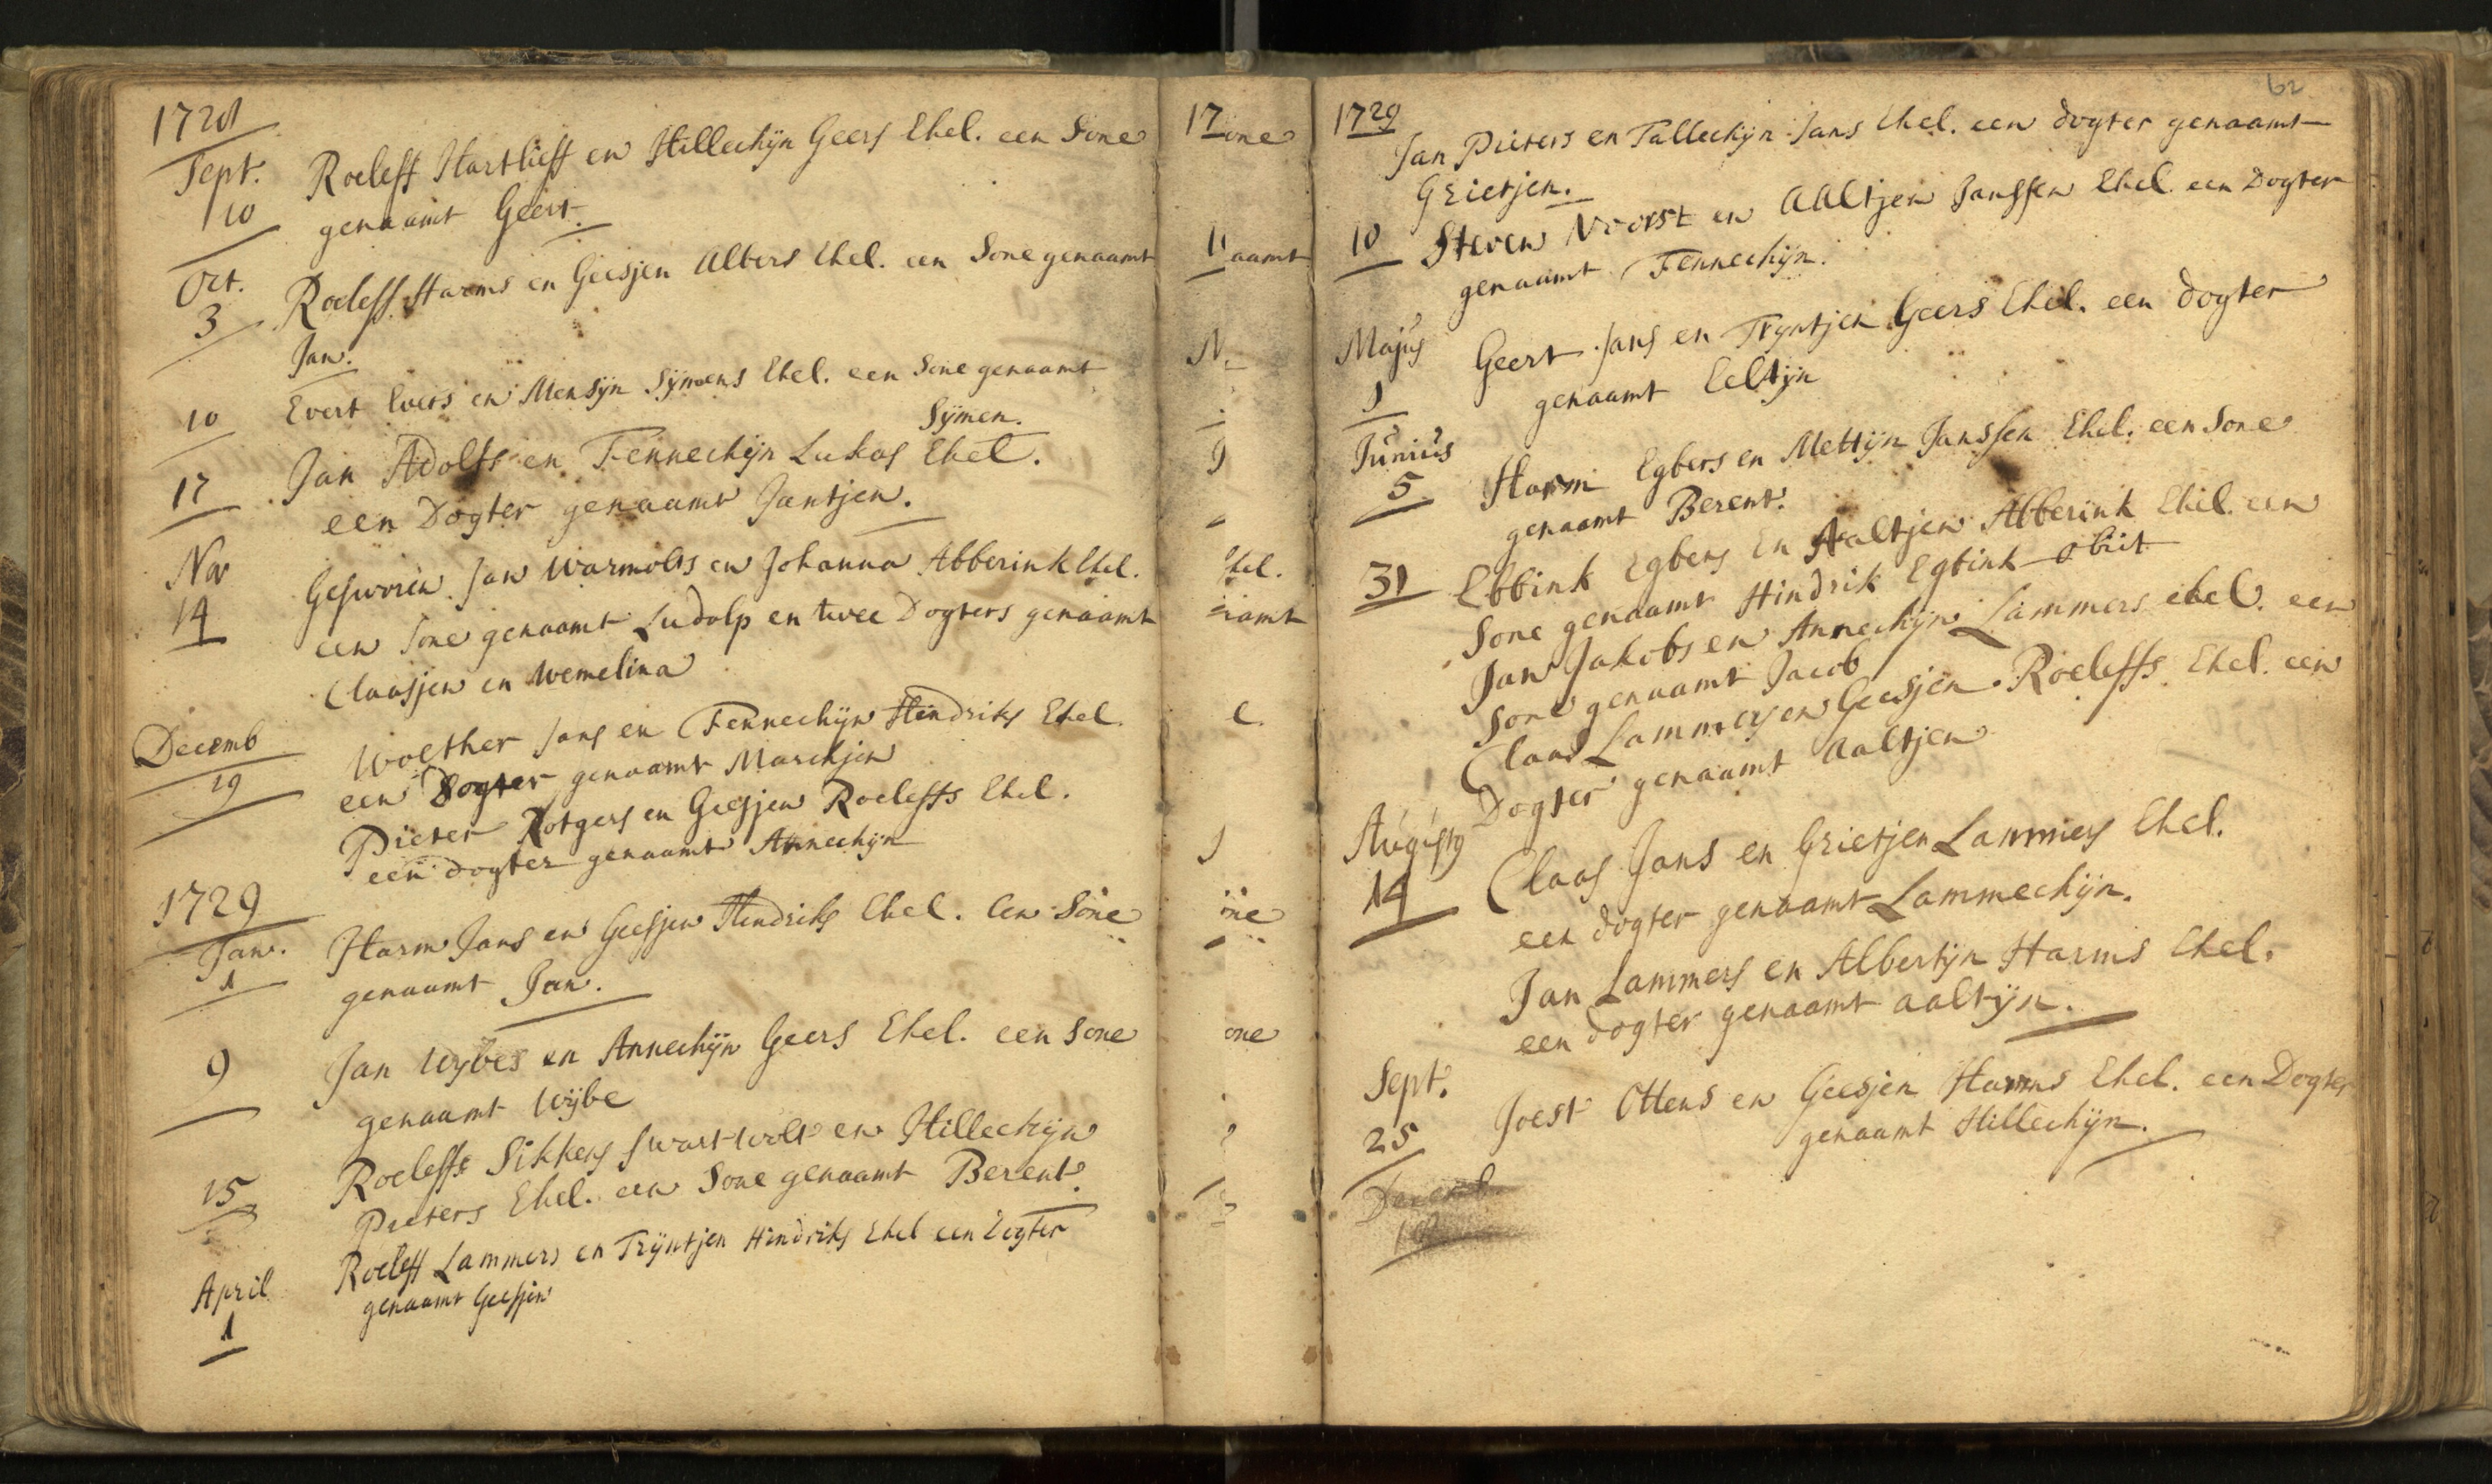 1728
Sept. Roeleff Hartlieff en Hillechijn Geers Ehel. een Sone
10 genaamt Geert.
Oct.
3 Roeleff Harms en Geesjen Albers Ehel. een Sone genaamt
Jan.
10 Evert Evers en Mensijn Sijmens Ehel. een Sone genaamt
Sijmen.
17 Jan Adolfs en Fennechijn Lukas Ehel.
een Dogter genaamt Jantjen.
Nov
14 Gesworen Jan Warmolts en Johanna Abberink Ehel.
een Sone genaamt Ludolp en twee Dogters genaamt
Claasjen en Wemelina
Decemb
19 Wolther Jans en Fennechijn Hindriks Ehel.
een Dogter genaamt Marchjen
Pieter Rotgers en Geesjen Roeleffs Ehel.
een dogter genaamt Annechijn
1729
Jan.
1 Harm Jans en Geesjen Hindriks Ehel. een Sone
genaamt Jan.
9 Jan Wybes en Annechijn Geers Ehel. een Sone
genaamt Wijbe
15 Roeleffs Sikkens Swart-wolt en Hillechijn
Pieters Ehel. een Sone genaamt Berent.
April
1 Roeleff Lammers en Trijntjen Hindriks Ehel een Dogter
genaamt Geesjen
17 one
aamt
N.
Ehel.
namt
l.
one
one
62
1729
Jan Pieters en Tallechijn Jans Ehel. een dogter genaamt
Grietjen.
10 Steven Voorst en Aaltjen Janssen Ehel. een Dogter
genaamt Fennechijn.
Majus
1 Geert Jans en Tryntjen Geers Ehel. een dogter
genaamt Eeltijn
Junius
5 Harm Egbers en Mettijn Janssen Ehel. een Sone
genaamt Berent.
31 Ebbink Egbers en Aaltjen Abberink Ehel. een
Sone genaamt Hindrik Egbink obiit
Jan Jakobs en Annechijn Lammers ehel. een
Sone genaamt Jacob
Claas Lammers en Geesjen Roeleffs Ehel. een
Dogter genaamt Aaltjen
Augusty
14 Claas Jans en Grietjen Lammers Ehel.
een dogter genaamt Lammechijn.
Jan Lammers en Albertijn Harms Ehel.
een dogter genaamt aaltijn.
Sept.
25 Joest Ottens en Geesjen Harms Ehel. een Dogter
genaamt Hillechijn.
Decemb